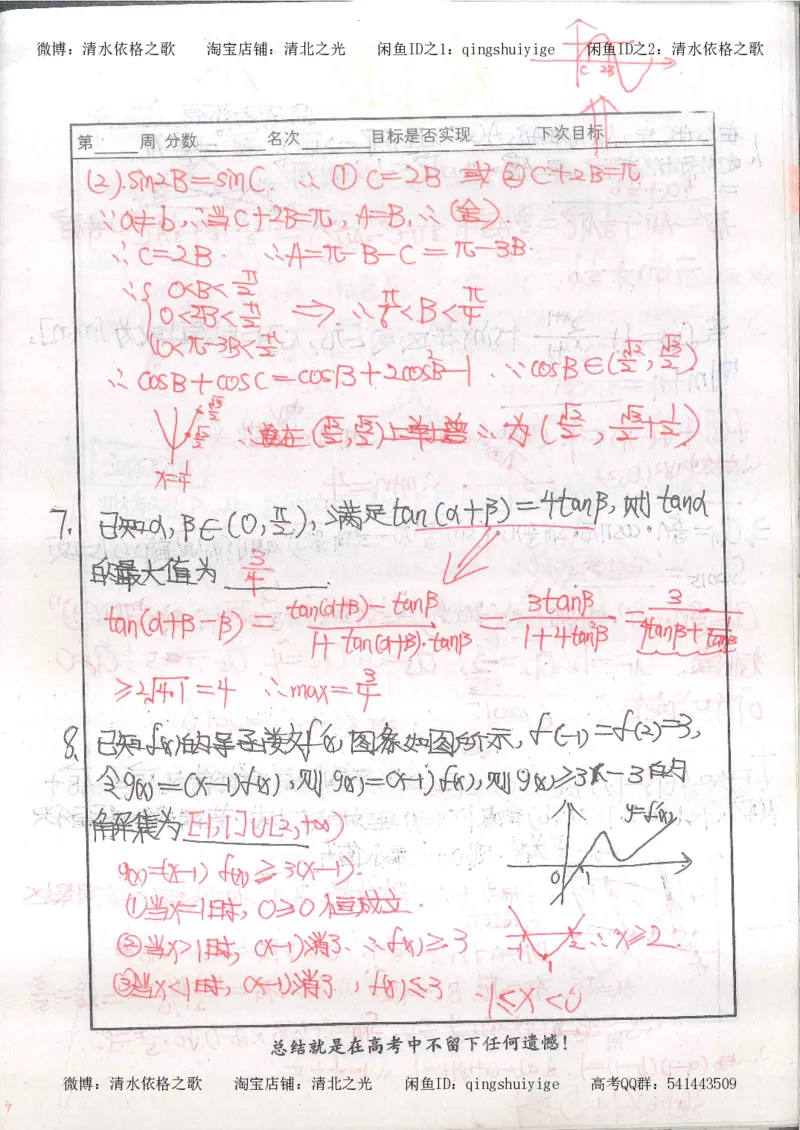 微博：清水依格之歌 淘宝店铺：清北之光 闲鱼ID之1：qingshuiyige 闲鱼ID之2：清水依格之歌
C 2B
第 周 分数 名次 目标是否实现 下次目标
(2).sin2B=sinC ∴ ① C=2B 或 ② C+2B=π
∵a≠b,∴当C+2B=π,A=B,∴(舍)
∴C=2B. ∴A=π-B-C=π-3B.
∴{ 0<B<π/2
0<2B<π/2 ⇒ ∴π/6<B<π/4
0<π-3B<π/2
∴ cosB+cosC=cosB+2cos²B-1. ∵cosB∈(√2/2,√3/2)
√3/2
√2/2 ∴在(√2/2,√3/2)上单增∴为(√2/2,√3/2+1/2)
x=1/4
7. 已知α,β∈(0,π/2),满足tan(α+β)=4tanβ,则tanα
的最大值为 3/4
tan(α+β-β)=(tan(α+β)-tanβ)/(1+tan(α+β)·tanβ)=3tanβ/(1+4tan²β)=3/(4tanβ+1/tanβ)
≥2√4·1=4 ∴max=3/4
8. 已知f(x)的导函数为f'(x),图象如图所示,f(-1)=f(2)=3,
令g(x)=(x-1)f(x),则g(x)=(x-1)f(x),则g(x)≥3x-3的
解集为[-1,1]∪[2,+∞)
y=f'(x)
0 1
g(x)=(x-1)f(x)≥3(x-1).
①当x=1时,0≥0恒成立.
②当x>1时,(x-1)消了,∴f(x)≥3 -1 1 2 ∴x≥2.
③当x<1时,(x-1)消了,f(x)≤3 -1≤x<0
总结就是在高考中不留下任何遗憾！
微博：清水依格之歌 淘宝店铺：清北之光 闲鱼ID：qingshuiyige 高考QQ群：541443509